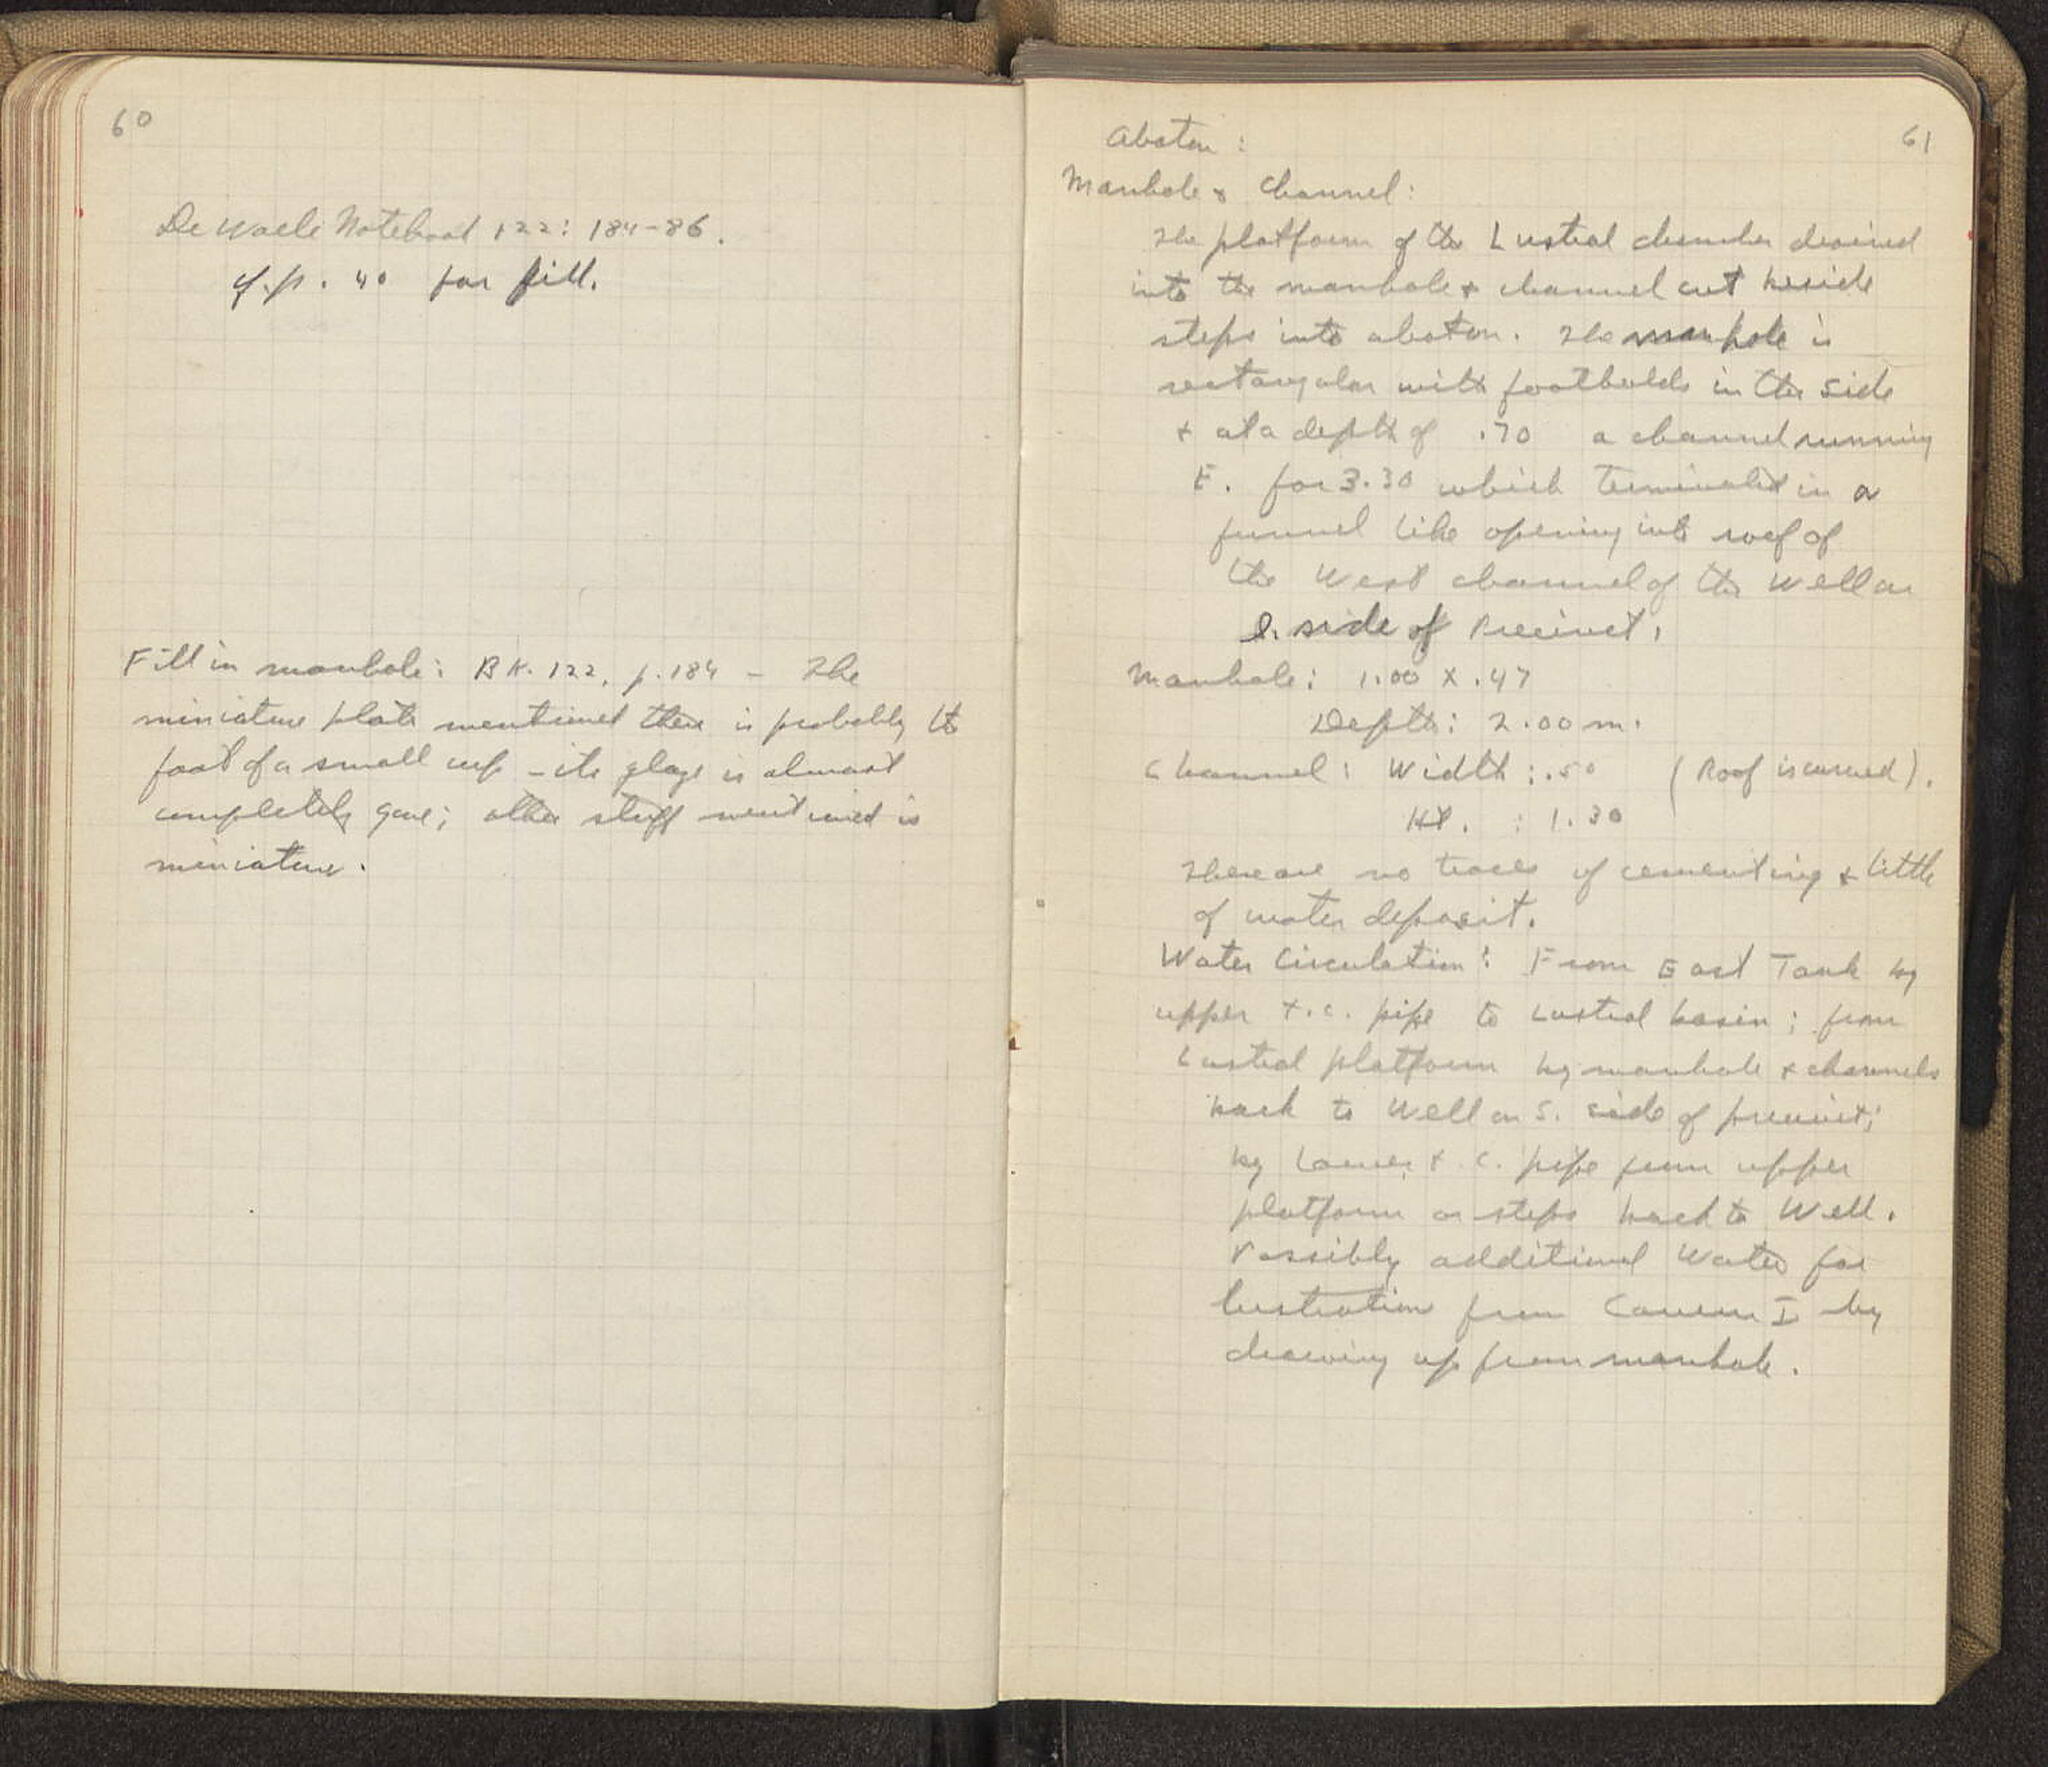 60
De Waele Notebook 122: 184-86.
cf. p. 40 for fill.
Fill in manhole: BK. 122, p. 184 - The
miniature plate mentioned there is probably the
foot of a small cup - its glaze is almost
completely gone; other stuff mentioned is
miniature.
61
Abaton:
Manhole & Channel:
The platform of the Lustral chamber drained
into the manhole & channel cut beside
steps into abaton. The manhole is
rectangular with footholds in the side
& at a depth of .70 a channel running
E. for 3.30 which terminated in a
funnel like opening into roof of
the West channel of the Well on
S. side of Precinct.
Manhole: 1.00 X .47
Depth: 2.00 m.
Channel: Width: .50 (Roof is curved).
Ht. : 1.30
There are no traces of cementing & little
of water deposit.
Water Circulation: From East Tank by
upper t.c. pipe to Lustral basin; from
Lustral platform by manhole & channels
back to Well on S. side of precinct;
by lower t.c. pipe from upper
platform or steps back to Well.
Possibly additional Water for
lustration from Cavern I by
drawing up from manhole.